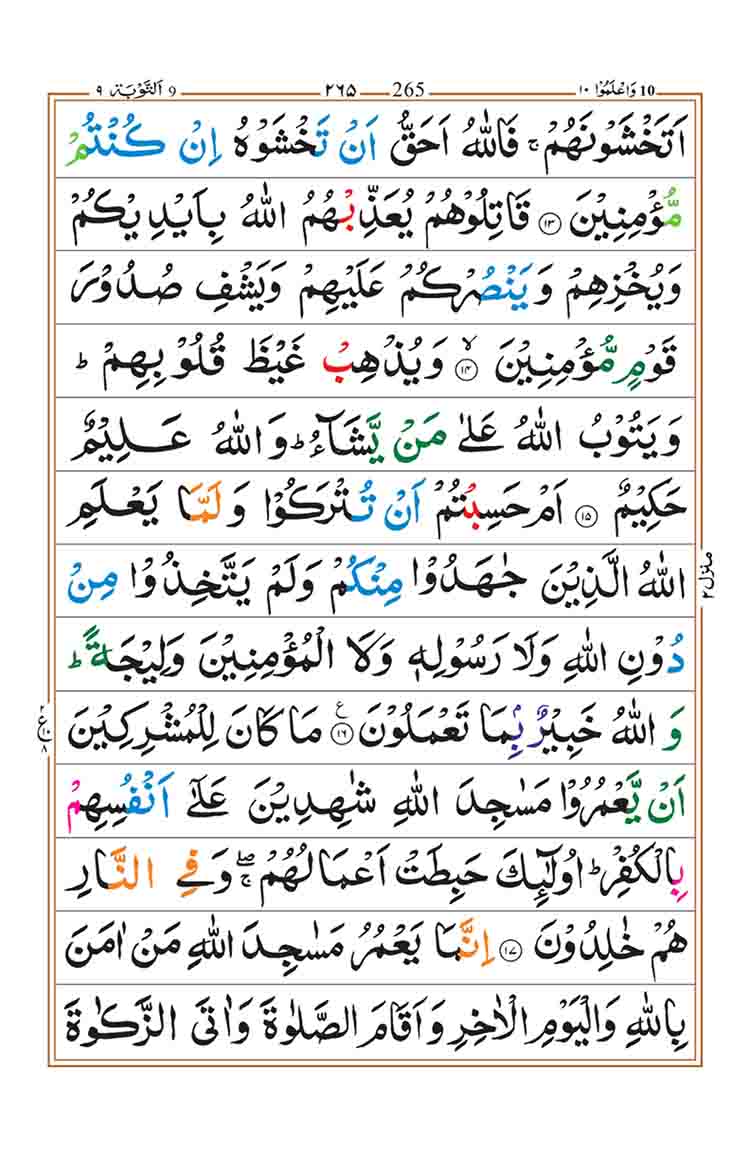 10 وَاعْلَمُوْا ١٠ 265 ٢٦٥ 9 اَلتَّوْبَة ٩
اَتَخْشَوْنَهُمْ ۚ فَاللّٰهُ اَحَقُّ اَنْ تَخْشَوْهُ اِنْ كُنْتُمْ
مُّؤْمِنِيْنَ ۝۱۳ قَاتِلُوْهُمْ يُعَذِّبْهُمُ اللّٰهُ بِاَيْدِيْكُمْ
وَيُخْزِهِمْ وَيَنْصُرْكُمْ عَلَيْهِمْ وَيَشْفِ صُدُوْرَ
قَوْمٍ مُّؤْمِنِيْنَ ۝۱۴ۙ وَيُذْهِبْ غَيْظَ قُلُوْبِهِمْ ؕ
وَيَتُوْبُ اللّٰهُ عَلٰى مَنْ يَّشَآءُ ؕ وَاللّٰهُ عَلِيْمٌ
حَكِيْمٌ ۝۱۵ اَمْ حَسِبْتُمْ اَنْ تُتْرَكُوْا وَلَمَّا يَعْلَمِ
اللّٰهُ الَّذِيْنَ جٰهَدُوْا مِنْكُمْ وَلَمْ يَتَّخِذُوْا مِنْ
دُوْنِ اللّٰهِ وَلَا رَسُوْلِهٖ وَلَا الْمُؤْمِنِيْنَ وَلِيْجَةً ؕ
وَاللّٰهُ خَبِيْرٌۢ بِمَا تَعْمَلُوْنَ ۝۱۶ ع مَا كَانَ لِلْمُشْرِكِيْنَ
اَنْ يَّعْمُرُوْا مَسٰجِدَ اللّٰهِ شٰهِدِيْنَ عَلٰٓى اَنْفُسِهِمْ
بِالْكُفْرِ ؕ اُولٰٓئِكَ حَبِطَتْ اَعْمَالُهُمْ ۖۚ وَفِي النَّارِ
هُمْ خٰلِدُوْنَ ۝۱۷ اِنَّمَا يَعْمُرُ مَسٰجِدَ اللّٰهِ مَنْ اٰمَنَ
بِاللّٰهِ وَالْيَوْمِ الْاٰخِرِ وَاَقَامَ الصَّلٰوةَ وَاٰتَى الزَّكٰوةَ
منزل ٢
ع ٨